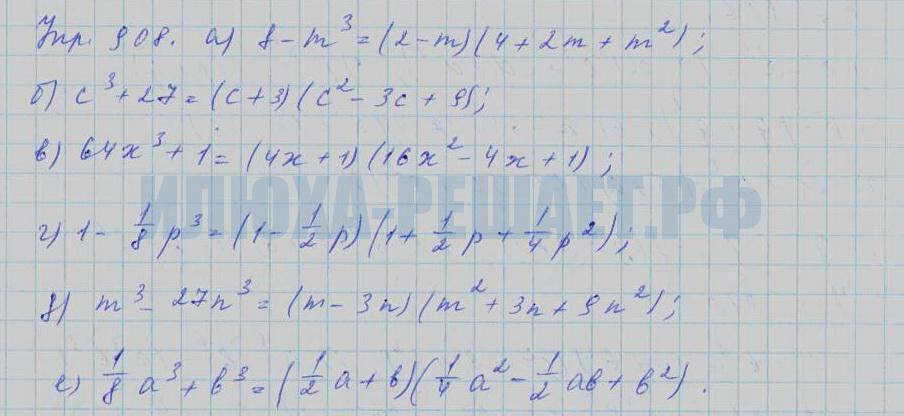 Упр. 908. а) 8 - m³ = (2 - m)(4 + 2m + m²);
б) c³ + 27 = (c + 3)(c² - 3c + 9);
в) 64x³ + 1 = (4x + 1)(16x² - 4x + 1);
ИЛЮХА-РЕШАЕТ.РФ
г) 1 - 1/8 p³ = (1 - 1/2 p)(1 + 1/2 p + 1/4 p²);
д) m³ - 27n³ = (m - 3n)(m² + 3n + 9n²);
е) 1/8 a³ + b³ = (1/2 a + b)(1/4 a² - 1/2 ab + b²).